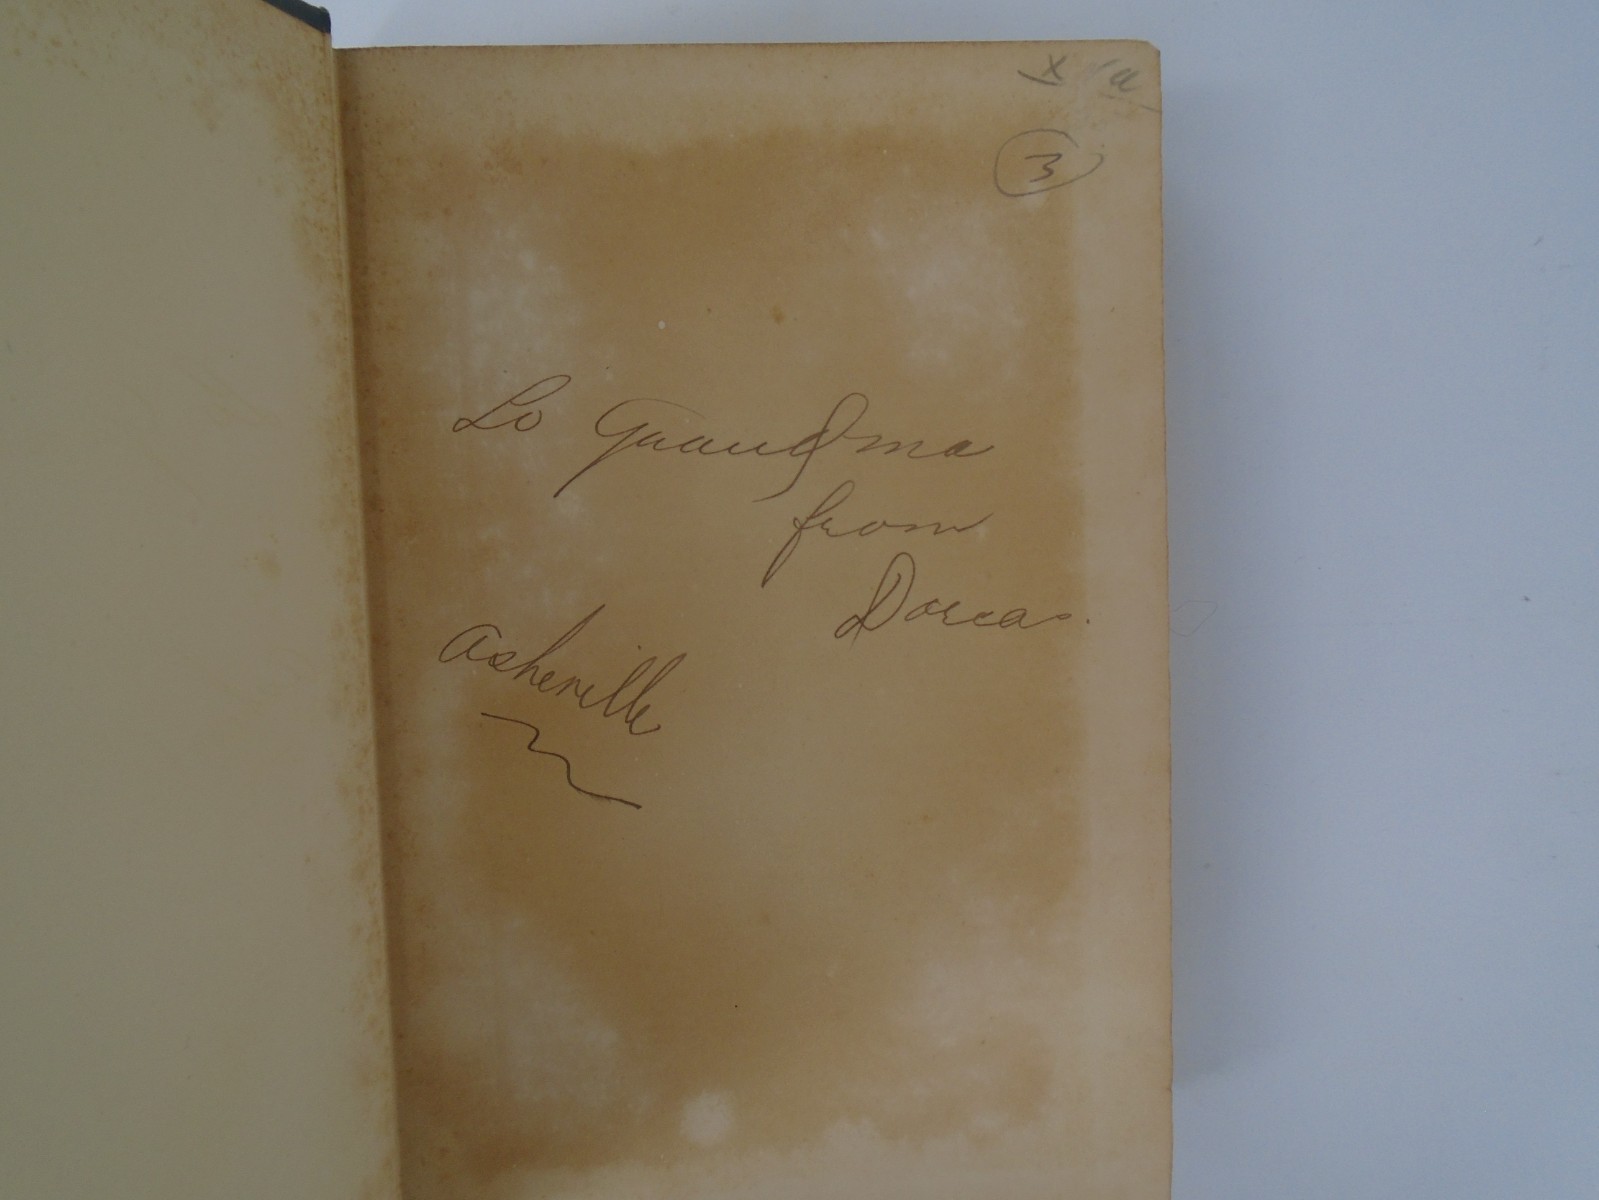 x
3
To Grandma
from
Dorcas.
Asheville